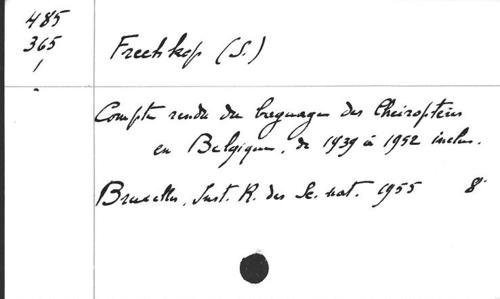 485
365
1
Frechkop (S.)
Compte rendu du baguages des Cheiroptères
en Belgique, de 1939 à 1952 inclus.
Bruxelles, Inst. R. des Sc. nat. 1955 8°